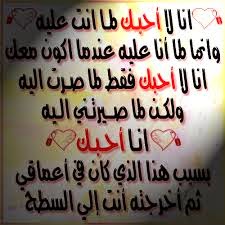 انا لا أحبك لما انت عليه
وأنما لما أنا عليه عندما اكون معك
انا لا أحبك فقط لما صرت اليه
ولكن لما صيرتني اليه
انا أحبك
بسبب هذا الذي كان في أعماقي
ثم أخرجته أنت إلي السطح